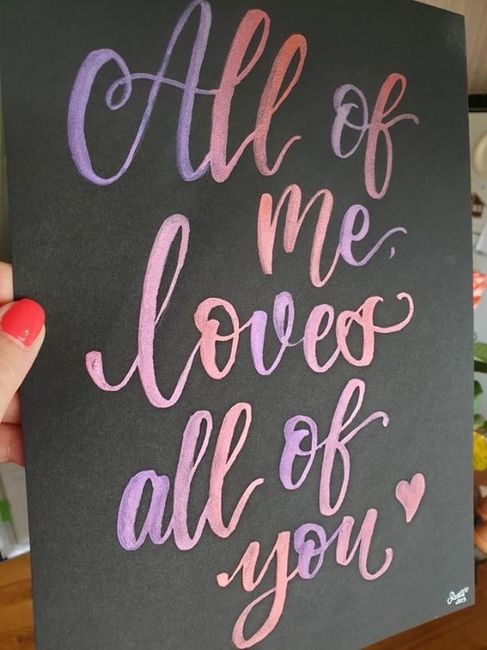 All of
me,
loves
all of
you